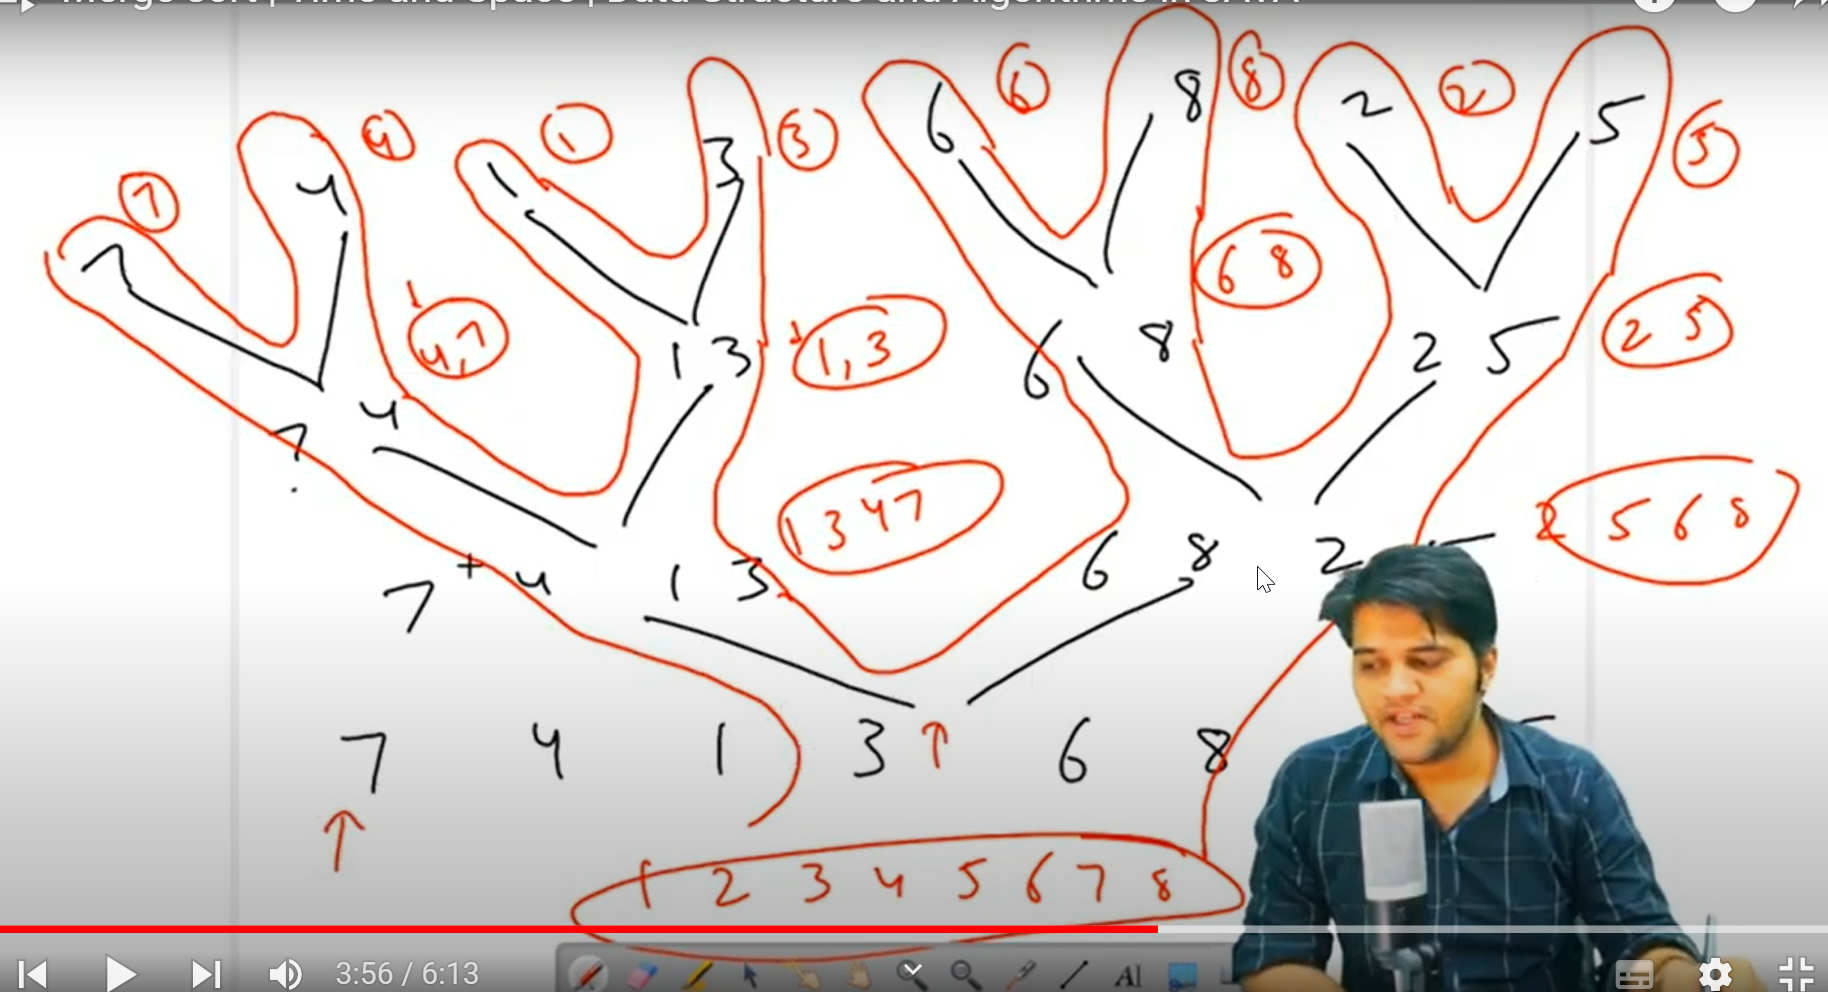 Merge Sort | Time and Space | Data Structure and Algorithms in JAVA
6 8 2 5
6 8 2 5
4 4 1 1 3 3
7 7
6 8
4,7 1 3 1,3 6 8 2 5 2 5
7 4
1 3 4 7 2 5 6 8
7 4 1 3 6 8 2
7 4 1 3 6 8
1 2 3 4 5 6 7 8
3:56 / 6:13
AI